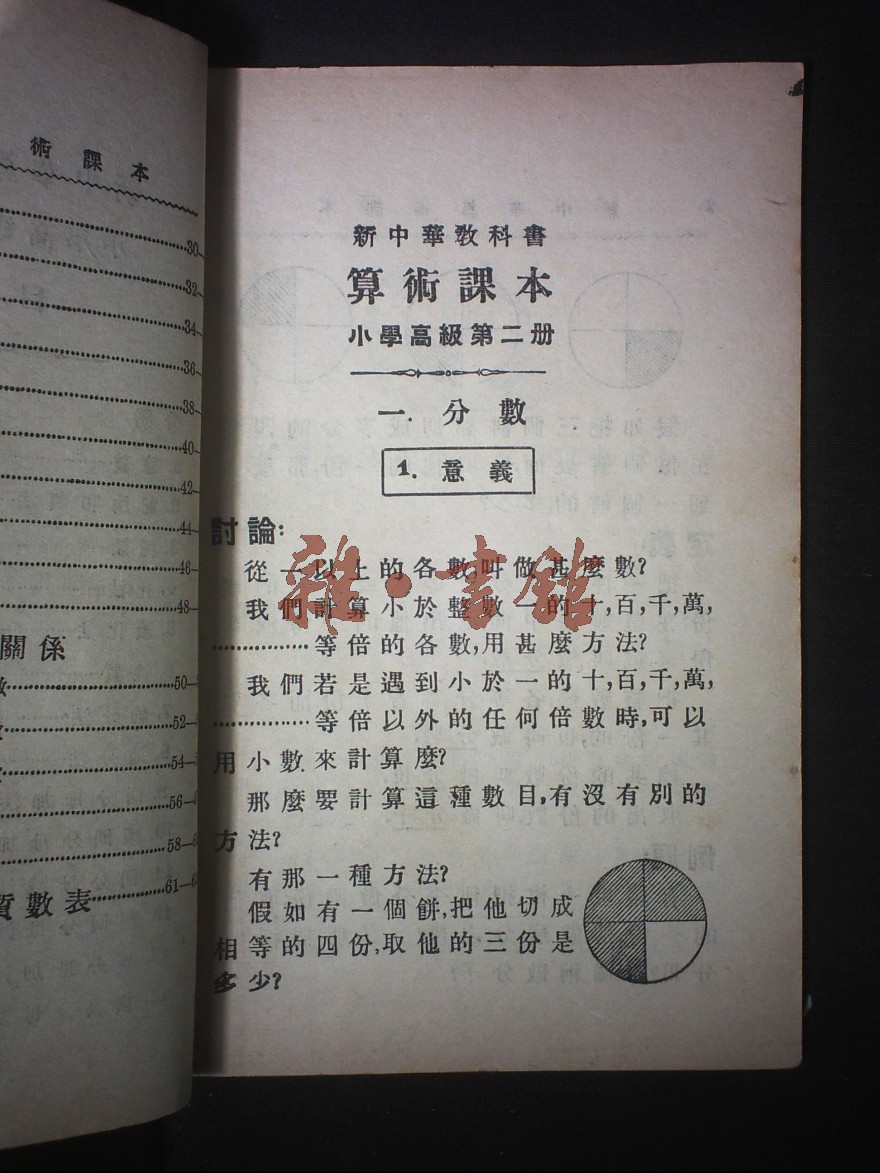 術課本
30
32
34
36
38
40
42
44
46
48
關係
50
52
54
56
58
質數表 61
新中華教科書
算術課本
小學高級第二册
一. 分數
1. 意義
討論:
從一以上的各數,叫做甚麼數?
我們計算小於整數一的十,百,千,萬,
……………等倍的各數,用甚麼方法?
我們若是遇到小於一的十,百,千,萬,
……………等倍以外的任何倍數時,可以
用小數來計算麼?
那麼要計算這種數目,有沒有別的
方法?
有那一種方法?
假如有一個餅,把他切成
相等的四份,取他的三份是
多少?
雜·書館